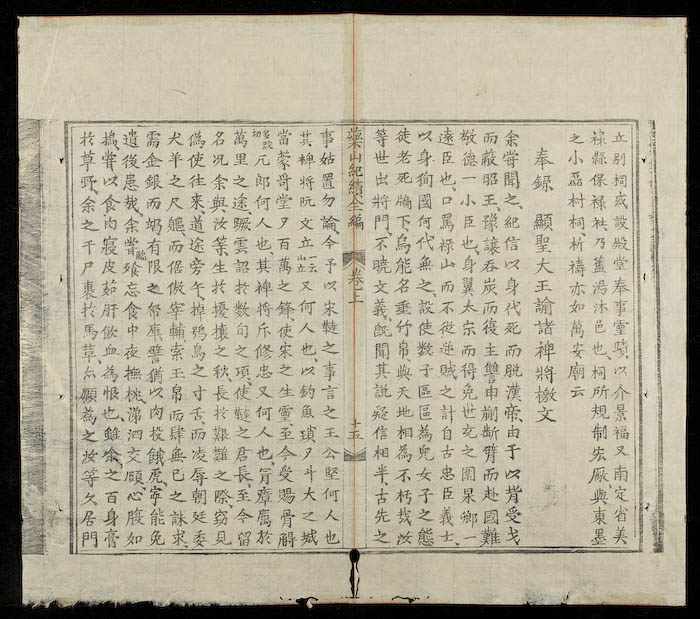 立別祠或設殿堂奉事靈蹟以介景福又南定省美
祿縣保祿社乃舊湯沐邑也祠所規制宏厰與東墨
之小磊村祠祈禱亦如萬安廟云
奉錄 顯聖大王諭諸裨將檄文
余嘗聞之紀信以身代死而脫漢帝由于以背受戈
而蔽昭王豫讓吞炭而復主讐申蒯断臂而赴國難
敬德一小臣也身翼太宗而得免世充之圍杲卿一
遠臣也口罵祿山而不從逆賊之計自古忠臣義士
以身狥國何代無之設使数子區區為兒女子之態
徒老死牖下烏能名垂竹帛與天地相為不朽哉汝
等世出將門不曉文義旣聞其說疑信相半古先之
藥山紀績全編 卷上 十五
事姑置勿論今予以宋韃之事言之王公堅何人也
其裨將阮文立一云山立又何人也以釣魚瑣夕斗大之城
當蒙哥堂夕百萬之鋒使宋之生靈至今受賜骨觧
多改切兀郎何人也其裨將斤修忠又何人也冒瘴厲於
萬里之途蹶雲詔於数旬之項使韃之君長至今留
名况余與汝等生於擾攘之秋長於艱難之際窃見
偽使往來道途旁午掉鴞鳥之寸舌而凌辱朝廷委
犬羊之尺軀而倨傲宰輔索玉帛而肆無已之誅求
需金銀而竭有限之帑庫譬猶以肉投餓虎寧能免
遺後患哉余嘗臨飡忘食中夜撫桃涕泗交頤心腹如
搗嘗以食肉寢皮茹肝飲血為恨也雖余之百身膏
於草野余之千尸裹於馬草亦願為之汝等久居門